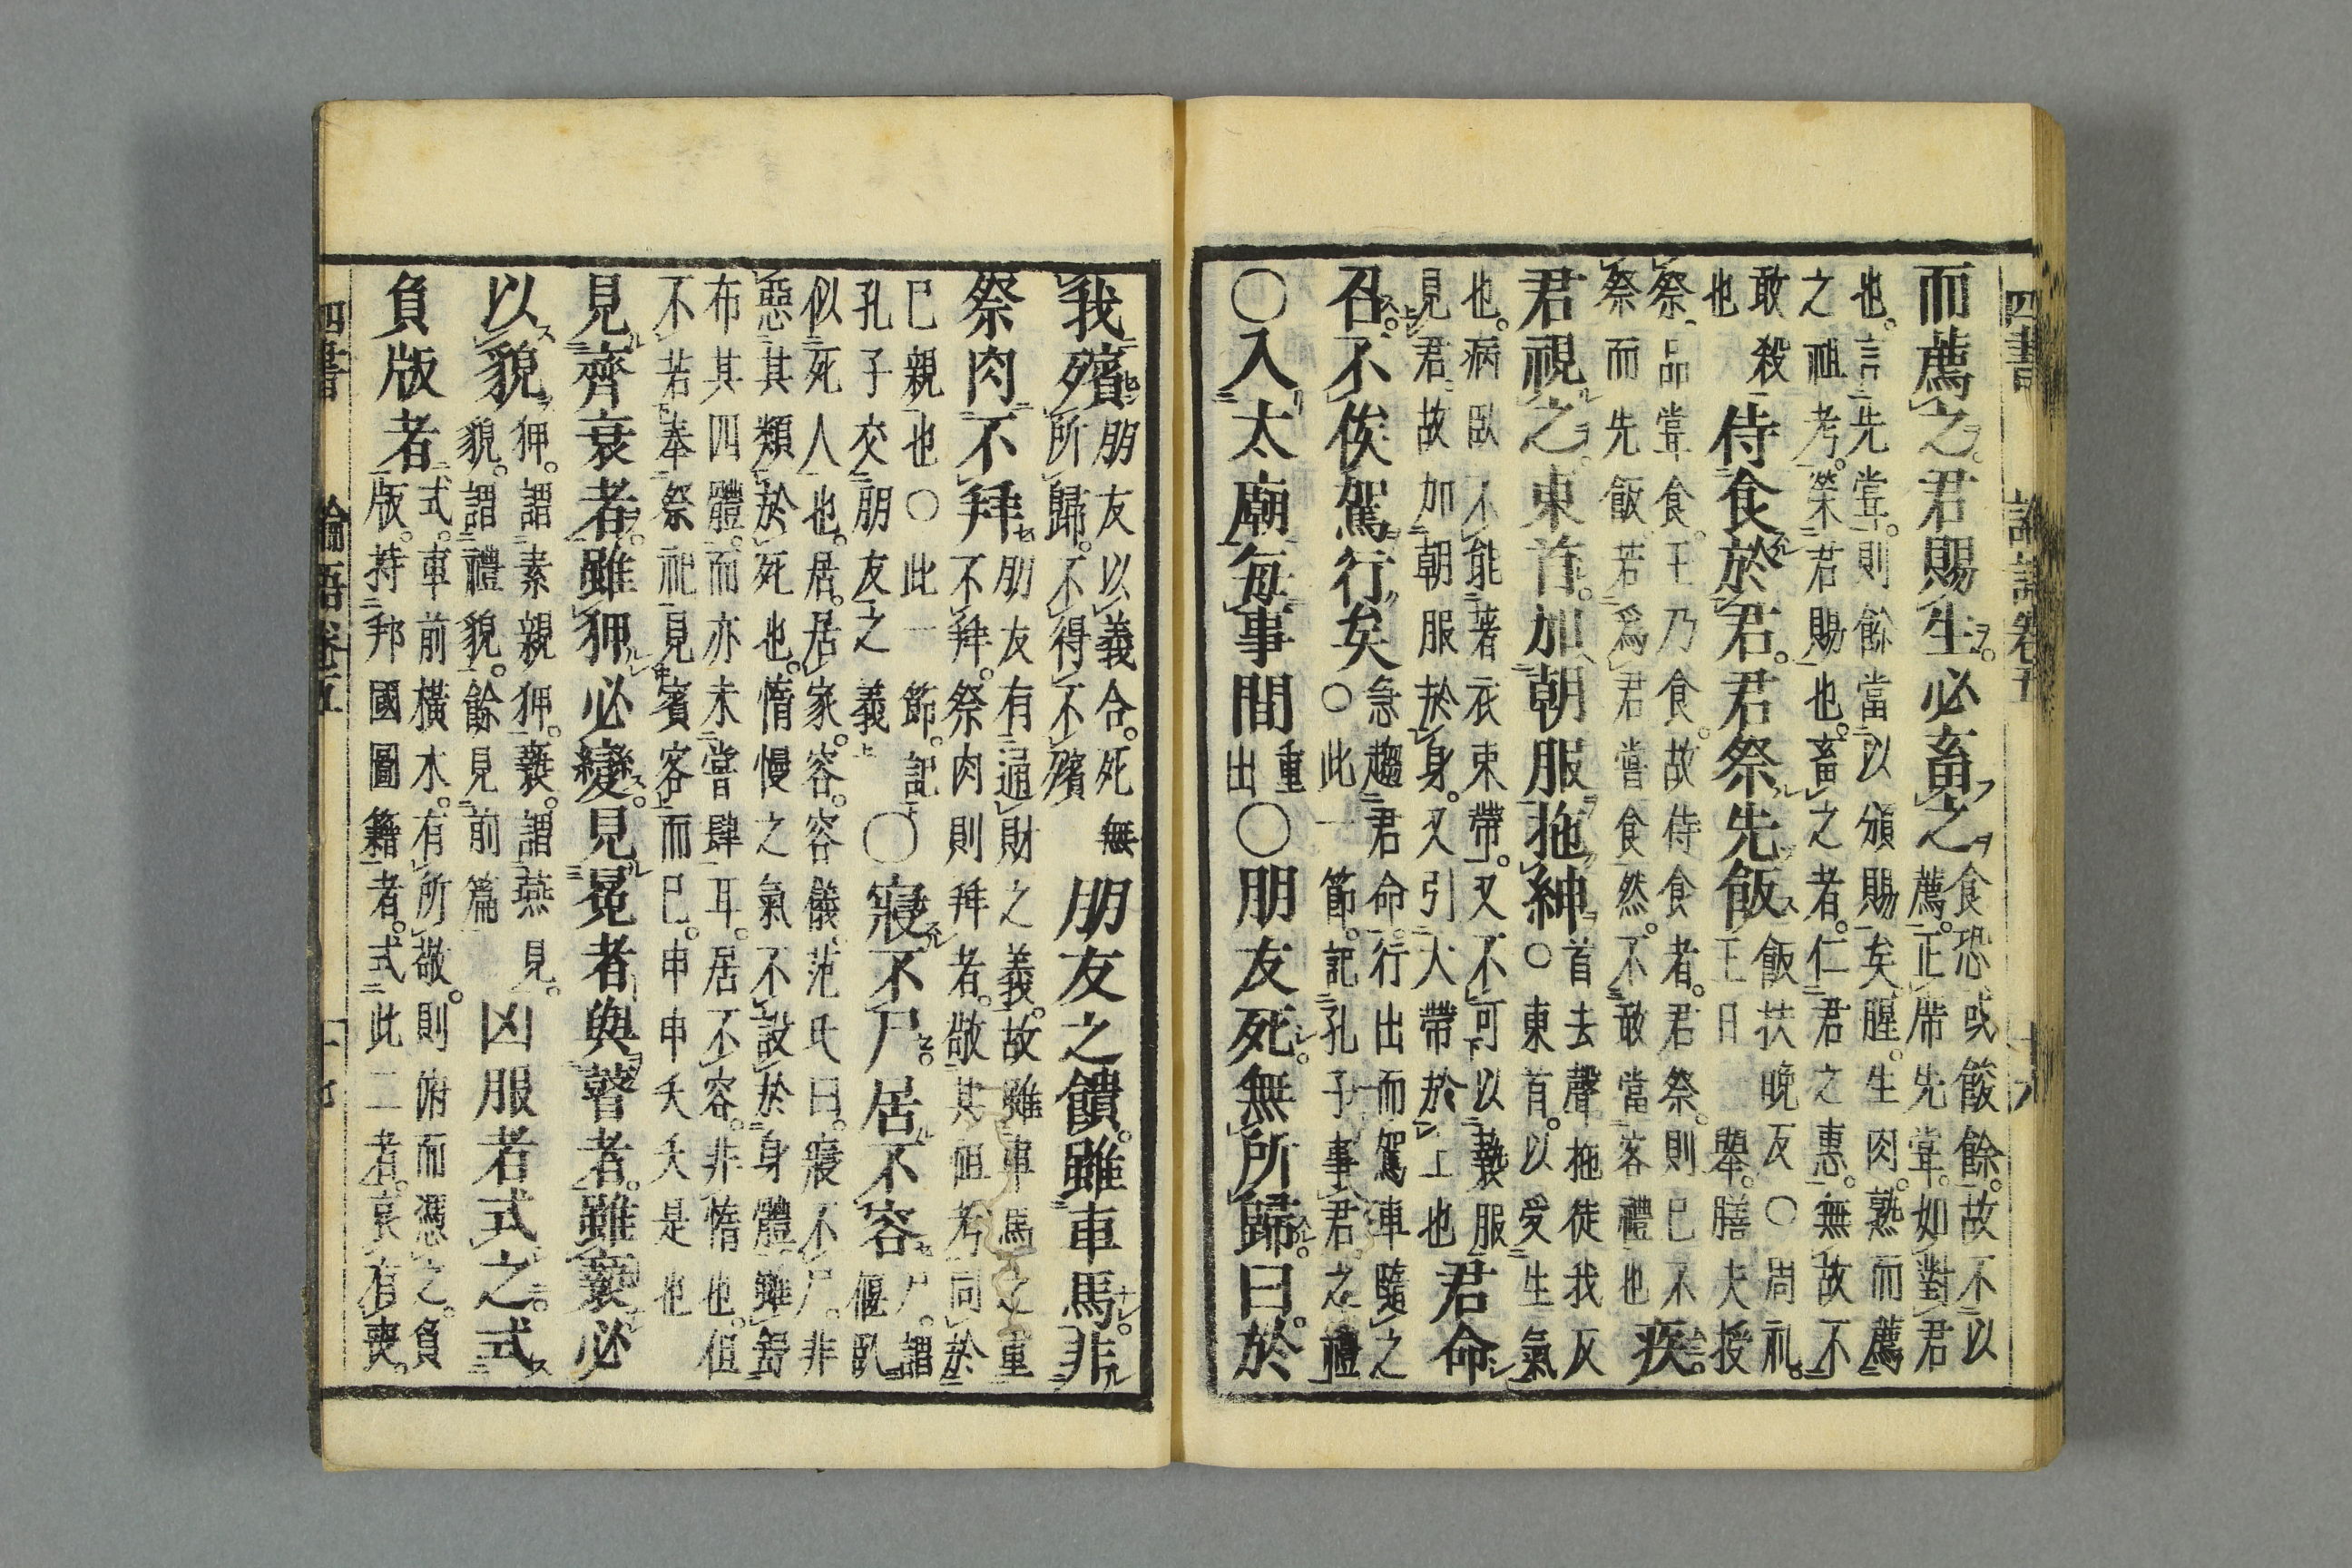 四書 論語卷五 十八
而薦之君賜生必畜之
食恐或餕餘故不以
薦正席先嘗如對君
也言先嘗則餘當以頒賜矣腥生肉熟而薦
之祖考榮君賜也畜之者仁君之惠無故不
敢殺
也
侍食於君君祭先飯
飯扶晚反○周礼
王日一舉膳夫授
祭品嘗食王乃食故侍食者君祭則已不
祭而先飯若爲君嘗食然不敢當客禮也
疾
君視之東首加朝服拖紳
首去聲拖徒我反
○東首以受生氣
也病臥不能著衣束帶又不可以褻服
見君故加朝服於身又引大帶於上也
君命
召不俟駕行矣
急趨君命行出而駕車隨之
○此一節記孔子事君之禮
○入太廟每事問
重
出
○朋友死無所歸曰於
我殯
朋友以義合死無
所歸不得不殯
朋友之饋雖車馬非
祭肉不拜
朋友有通財之義故雖車馬之重
不拜祭肉則拜者敬其祖考同於
已親也○此一節記
孔子交朋友之義
○寢不尸居不容
尸謂
偃臥
似死人也居居家容容儀范氏曰寢不尸非
惡其類於死也惰慢之氣不設於身體雖舒
布其四體而亦未嘗肆耳居不容非惰也但
不若奉祭祀見賓客而已申申夭夭是也
見齊衰者雖狎必變見冕者與瞽者雖褻必
以貌
狎謂素親狎褻謂燕見
貌謂禮貌餘見前篇
凶服者式之式
負版者
式車前橫木有所敬則俯而憑之負
版持邦國圖籍者式此二者哀有喪
四書 論語卷五